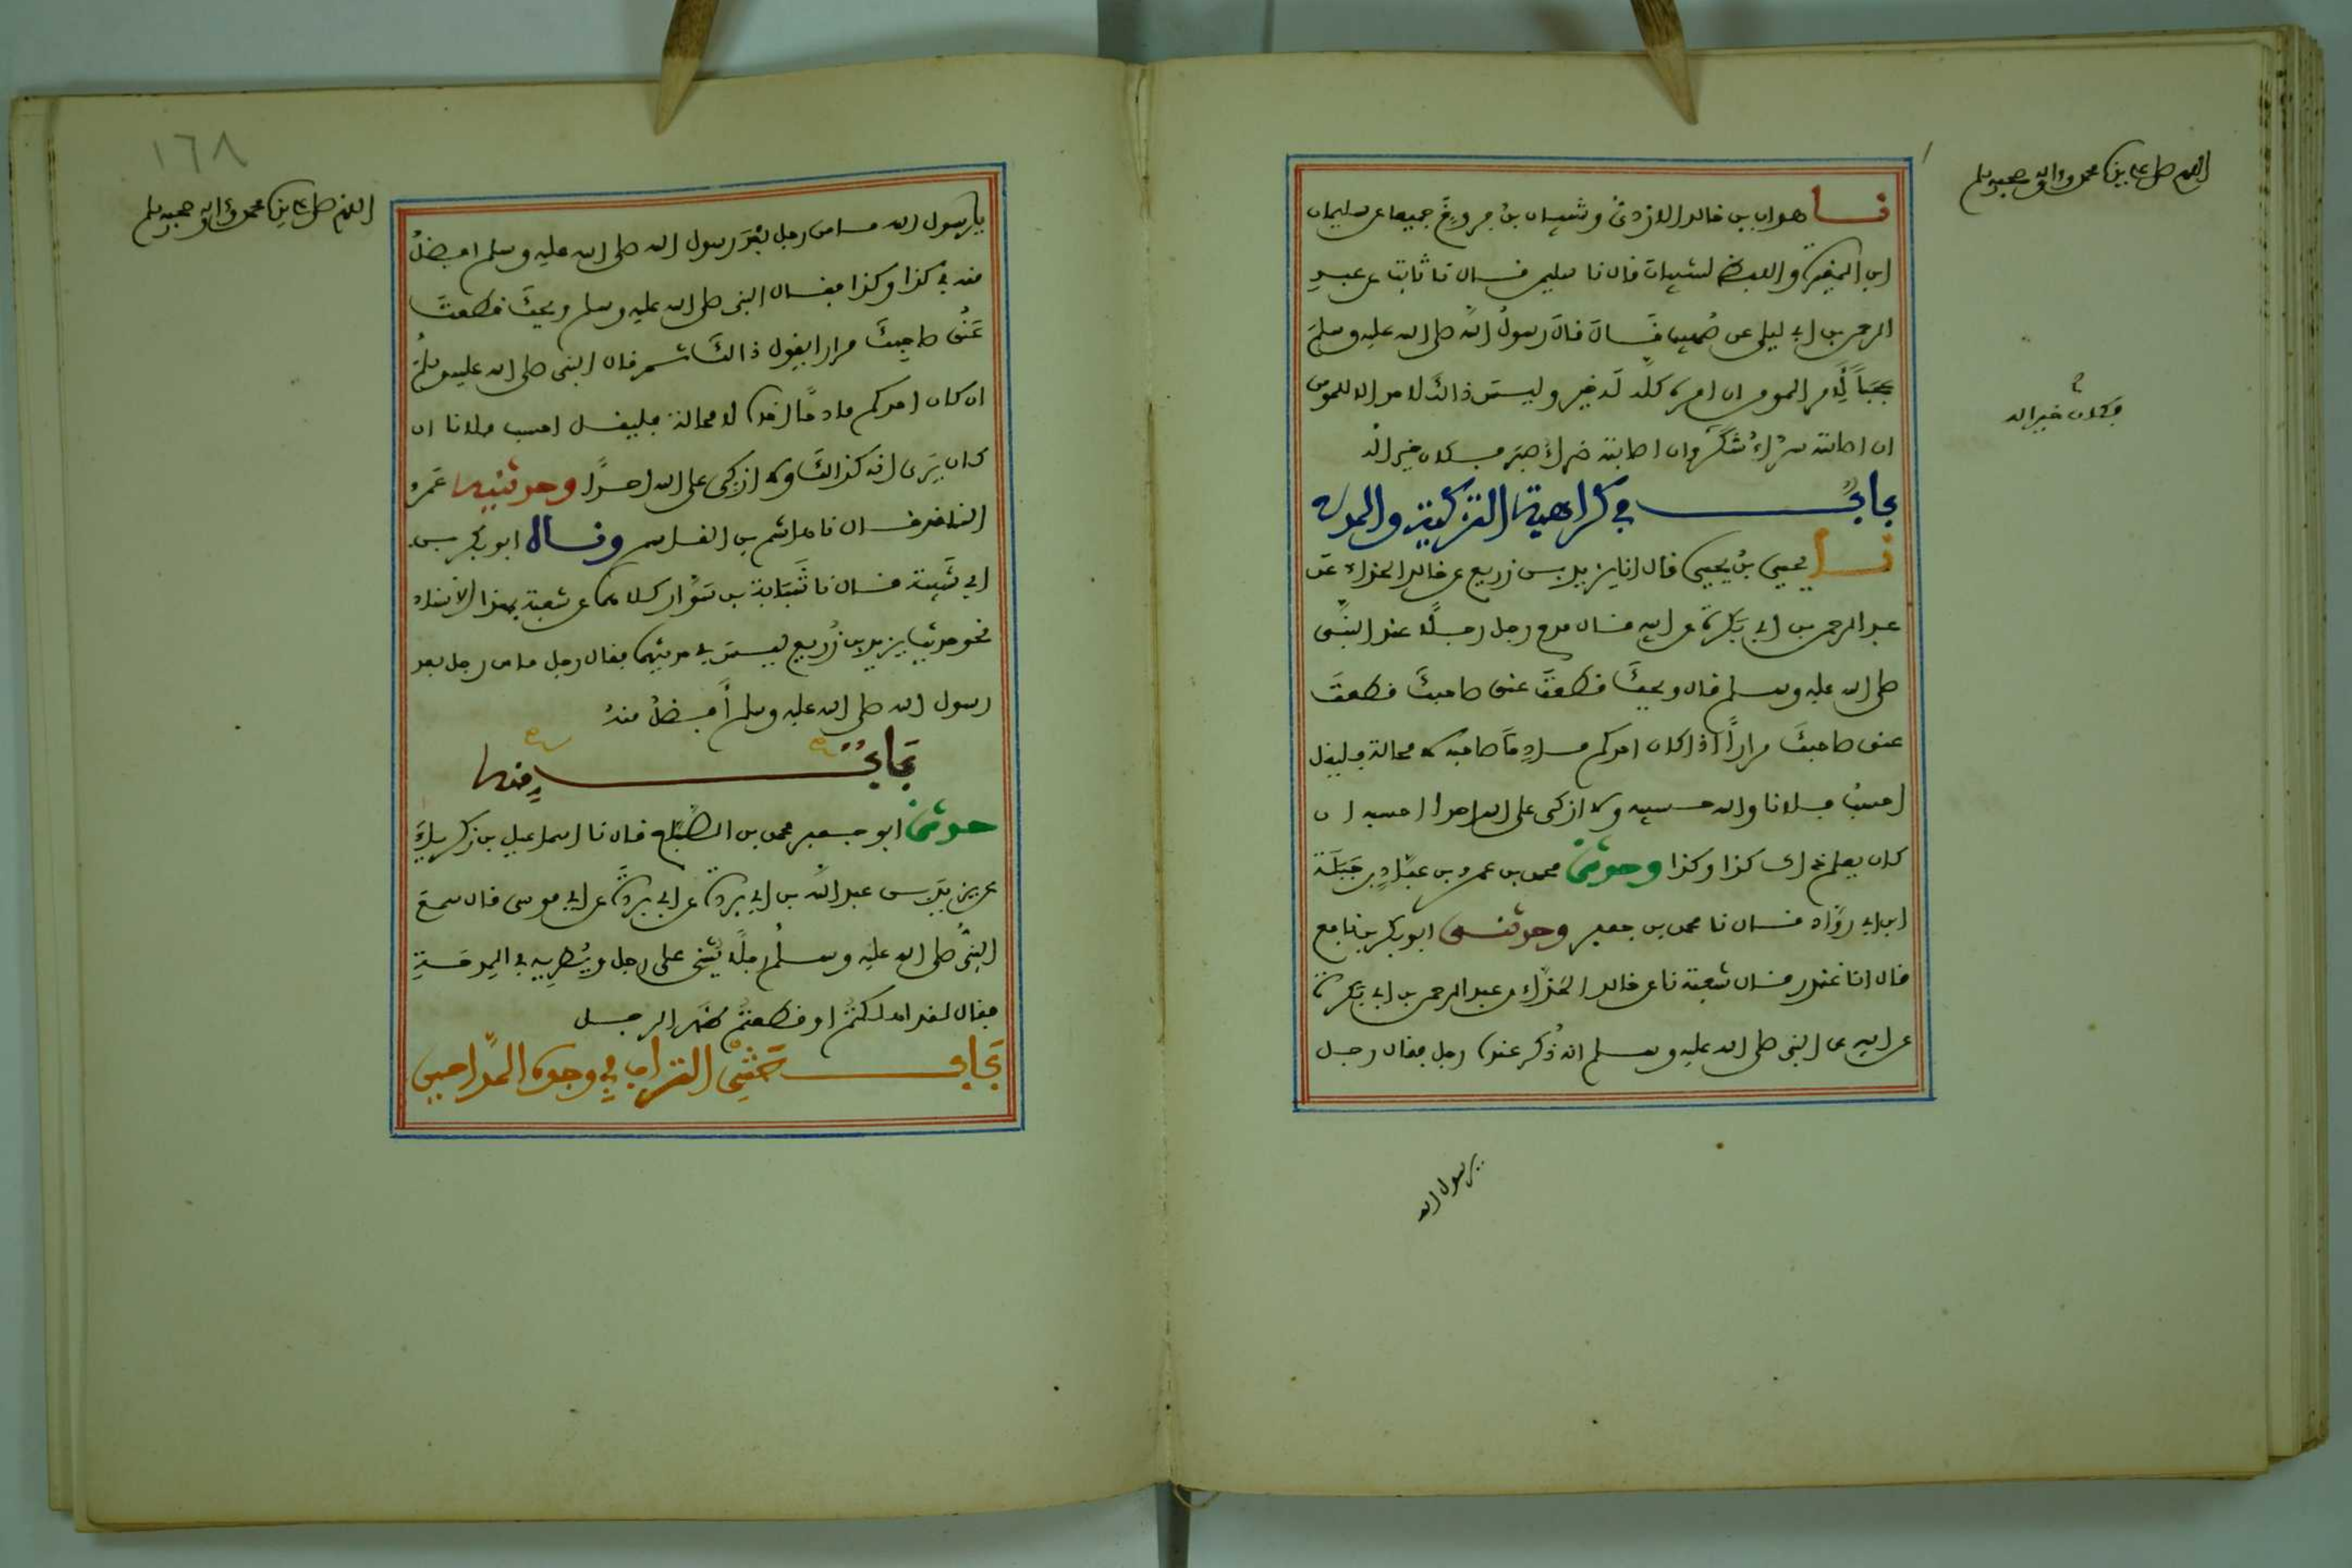 اللهم صل على سيدنا محمد وءاله وصحبه وسلم
نا هداب بن خالد الازدي وشيبان بن فروخ جميعا عن سليمان
ابن المغيرة واللفظ لشيبان قال نا سليمن قال نا ثابت عن عبد
الرحمن بن ابي ليلى عن صهيب قال قال رسول الله صلى الله عليه وسلم
عجبا لأمر المومن ان امره كله له خير وليس ذالك لاحد الا للمومن
ان اصابته سراء شكر وان اصابته ضراء صبر فكان خير اله
فكان خير اله
باب في كراهية التزكية والمدح
نا يحيى بن يحيى قال انا يزيد بن زريع عن خالد الحذاء عن
عبد الرحمن بن ابي بكرة عن ابيه قال مدح رجل رجلا عند النبي
صلى الله عليه وسلم قال ويحك قطعت عنق صاحبك قطعت
عنق صاحبك مرارا اذا كان احدكم مادحا صاحبه لا محالة فليقل
احسب فلانا والله حسيبه ولا ازكى على الله احدا احسبه ان
كان يعلم ذاك كذا وكذا وحدثني محمد بن عمرو بن عباد بن جبلة
ابن ابي رواد قال نا محمد بن جعفر وحدثني ابو بكر بن نافع
قال انا غندر قال شعبة نا عن خالد الحذاء عن عبد الرحمن بن ابي بكرة
عن ابيه عن النبي صلى الله عليه وسلم انه ذكر عنده رجل فقال رجل
يرسول الله
١٦٨
اللهم صل على سيدنا محمد وءاله وصحبه وسلم
يا رسول الله ما من رجل بعد رسول الله صلى الله عليه وسلم افضل
منه في كذا وكذا فقال النبي صلى الله عليه وسلم ويحك قطعت
عنق صاحبك مرارا يقول ذالك ثم قال النبي صلى الله عليه وسلم
ان كان احدكم مادحا اخاه لا محالة فليقل احسب فلانا ان
كان يرى انه كذالك ولا ازكى على الله احدا وحدثنيه عمرو
الناقد قال نا هاشم بن القاسم وقال ابو بكر بن
ابي شيبة قال نا شبابة بن سوار كلاهما عن شعبة بهذا الاسناد
نحو حديث يزيد بن زريع ليس في حديثهما فقال رجل ما من رجل بعد
رسول الله صلى الله عليه وسلم أفضل منه
باب منه
حدثني ابو جعفر محمد بن الصباح قال نا اسماعيل بن زكرياء
عن بريد بن عبد الله بن ابي بردة عن ابي بردة عن ابي موسى قال سمع
النبي صلى الله عليه وسلم رجلا يثني على رجل ويطريه في المدحة
فقال لقد اهلكتم او قطعتم ظهر الرجل
باب حثي التراب في وجوه المداحين